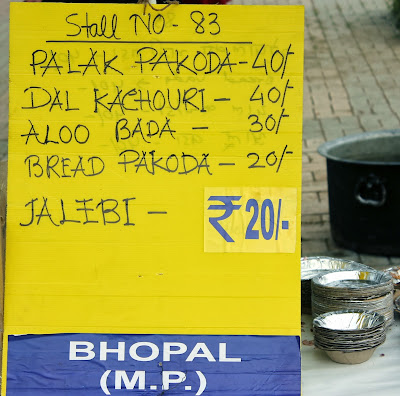 Stall NO - 83
PALAK PAKODA - 40/-
DAL KACHOURI - 40/-
ALOO BADA - 30/-
BREAD PAKODA - 20/-
JALEBI - ₹ 20/-
BHOPAL
(M.P.)